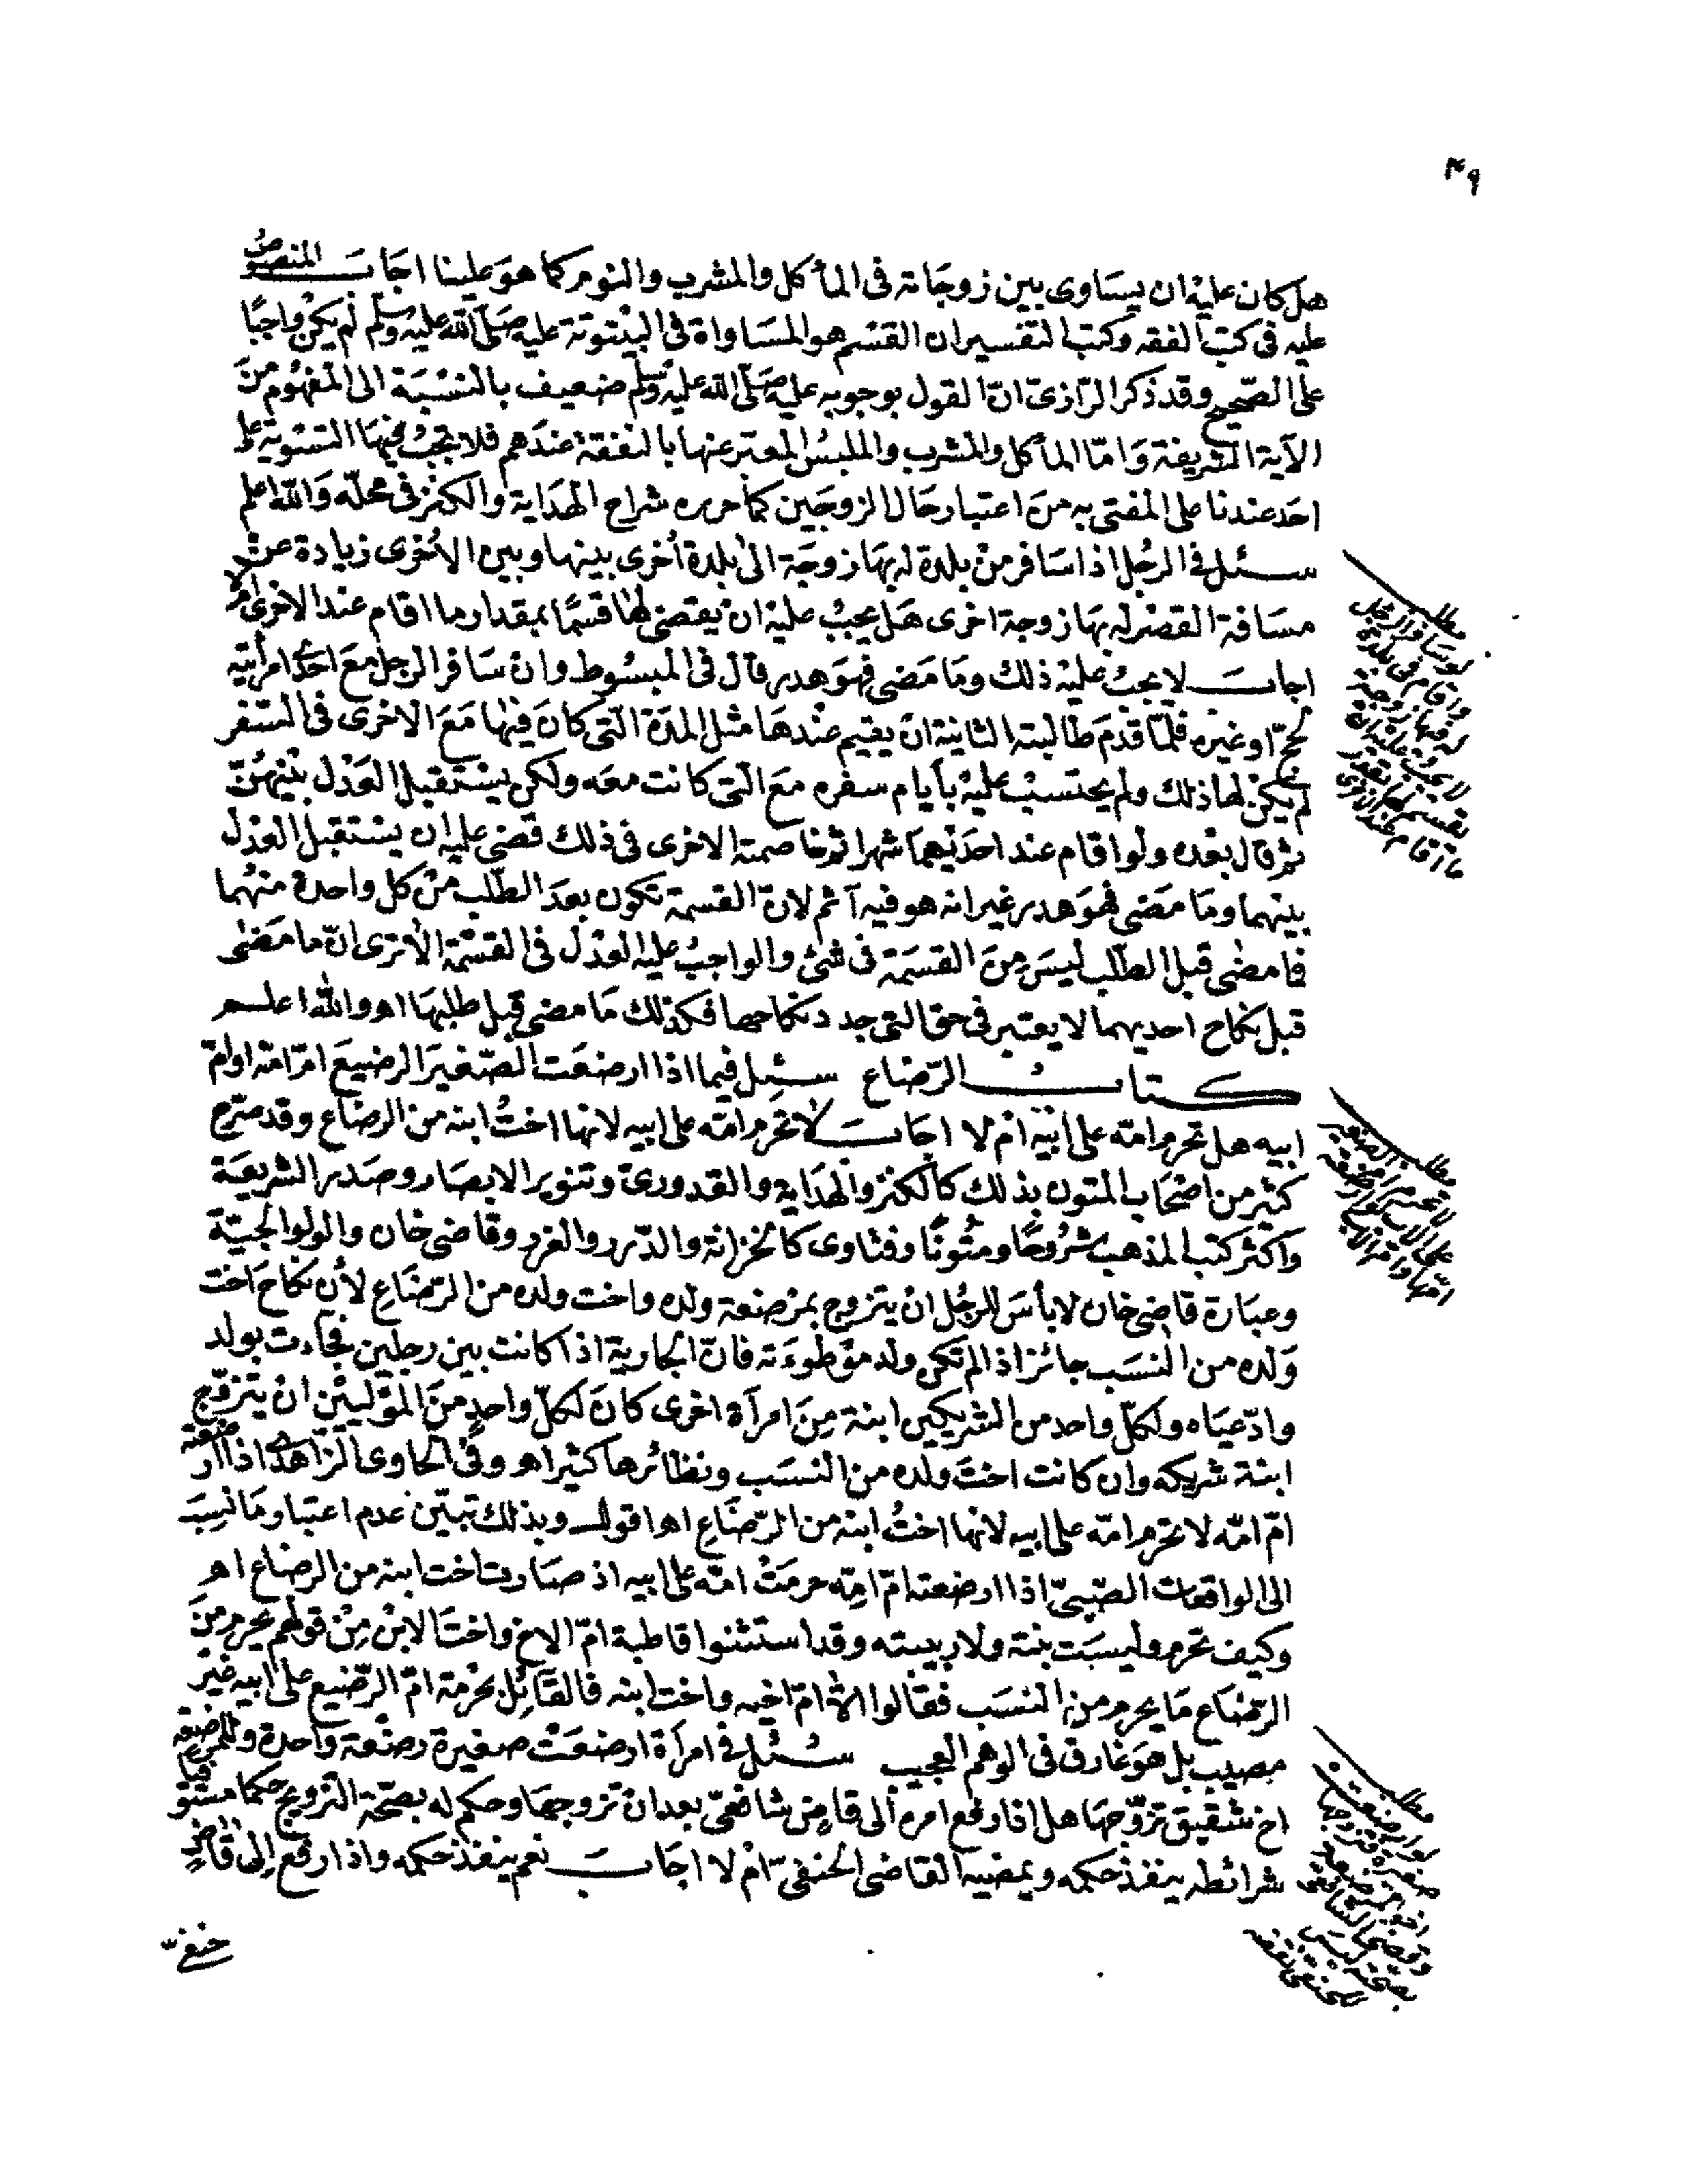 ٤٩
هل كان عليه ان يساوى بين زوجاته فى المأكل والمشرب والنوم كما هو علينا اجاب المنصوص
عليه فى كتب الفقه وكتب التفسير ان القسم هو المساواة فى البيتوتة عليه صلى الله عليه وسلم لم يكن واجبًا
على الصحيح وقد ذكر الرّازىّ انّ القول بوجوبه عليه صلى الله عليه وسلم ضعيف بالنسبة الى المفهوم من
الآية الشريفة وامّا المأكل والمشرب والملبس المعبّر عنها بالنفقة عندهم فلا تجب فيها التسوية على
احد عندنا على المفتى به من اعتبار حال الزوجين كما حرره شراح الهداية والكنز فى محلّه والله اعلم
سئل فى الرجل اذا سافر من بلدة له بها زوجة الى بلدة أخرى بينها وبين الأخرى زيادة عن
مسافة القصر له بها زوجة اخرى هل يجب عليه ان يقضى لها قسمًا بمقدار ما اقام عند الاخرى ام لا
اجاب لا يجب عليه ذلك وما مضى فهو هدر قال فى المبسوط وان سافر الرجل مع احدى امرأتيه
لحجّ او غيره فلمّا قدم طالبته الثانية ان يقيم عندها مثل المدّة التى كان فيها مع الاخرى فى السفر
لم يكن لها ذلك ولم يحتسب عليه بأيام سفره مع التى كانت معه ولكن يستقبل العدل بينهنّ
ثم قال بعده ولو اقام عند احديهما شهرا ثم خاصمته الاخرى فى ذلك قضى عليه ان يستقبل العدل
بينهما وما مضى فهو هدر غير انه هو فيه آثم لانّ القسمة تكون بعد الطلب من كل واحدة منهما
فما مضى قبل الطلب ليس من القسمة فى شئ والواجب عليه العدل فى القسمة الا ترى انّ ما مضى
قبل نكاح احديهما لا يعتبر فى حق التى جدد نكاحها فكذلك ما مضى قبل طلبها اهـ والله اعلم
كتاب الرّضاع سئل فيما اذا ارضعت الصّغير الرضيع امّ امّه او امّ
ابيه هل تحرم امّه على ابيه ام لا اجاب لا تحرم امّه على ابيه لانها اخت ابنه من الرضاع وقد صرّح
كثير من اصحاب المتون بذلك كالكنز والهداية والقدورىّ وتنوير الابصار وصدر الشريعة
واكثر كتب المذهب شروحًا ومتونًا وفتاوى كالخزانة والدّرر والغرر وقاضى خان والولوالجيّة
وعبارة قاضى خان لا بأس للرجل ان يتزوج بمرضعة ولده واخت ولده من الرّضاع لأن نكاح اخت
ولده من النسب جائز اذا لم تكن ولد موطوءته فانّ الجارية اذا كانت بين رجلين فجاءت بولد
وادّعياه ولكلّ واحد من الشريكين ابنة من امرأة اخرى كان لكلّ واحد من الموليين ان يتزوّج
ابنة شريكه وان كانت اخت ولده من النسب ونظائرها كثير اهـ وفى الحاوى الزاهدى اذا ارضعته
امّ امّه لا تحرم امّه على ابيه لانها اخت ابنه من الرّضاع اهـ اقول وبذلك تبيّن عدم اعتبار ما نسب
الى الواقعات الصّبىّ اذا ارضعته امّ امّه حرمت امّه على ابيه اذ صارت اخت ابنه من الرضاع اهـ
وكيف تحرم وليست بنته ولا ربيبته وقد استثنوا قاطبة امّ الاخ واخت الابن من قولهم يحرم من
الرّضاع ما يحرم من النسب فقالوا الا امّ اخيه واخت ابنه فالقائل بحرمة امّ الرّضيع على ابيه غير
مصيب بل هو غارق فى الوهم العجيب سئل فى امرأة ارضعت صغيرة رضعة واحدة وللمرضعة
اخ شقيق تزوّجها هل اذا رفع امره الى قاض شافعىّ بعد ان تزوجها وحكم له بصحّة التزويج حكما مستوفيا
شرائطه ينفذ حكمه ويمضيه القاضى الحنفىّ ام لا اجاب نعم ينفذ حكمه واذا رفع الى قاض
حنفىّ
مطلب
لو سافر الرجل
واقام فى بلدة
له فيها زوجة
لا يجب عليه ان
يقسم لها بقدر
ما اقام عند الاخرى
مطلب
لو ارضعت